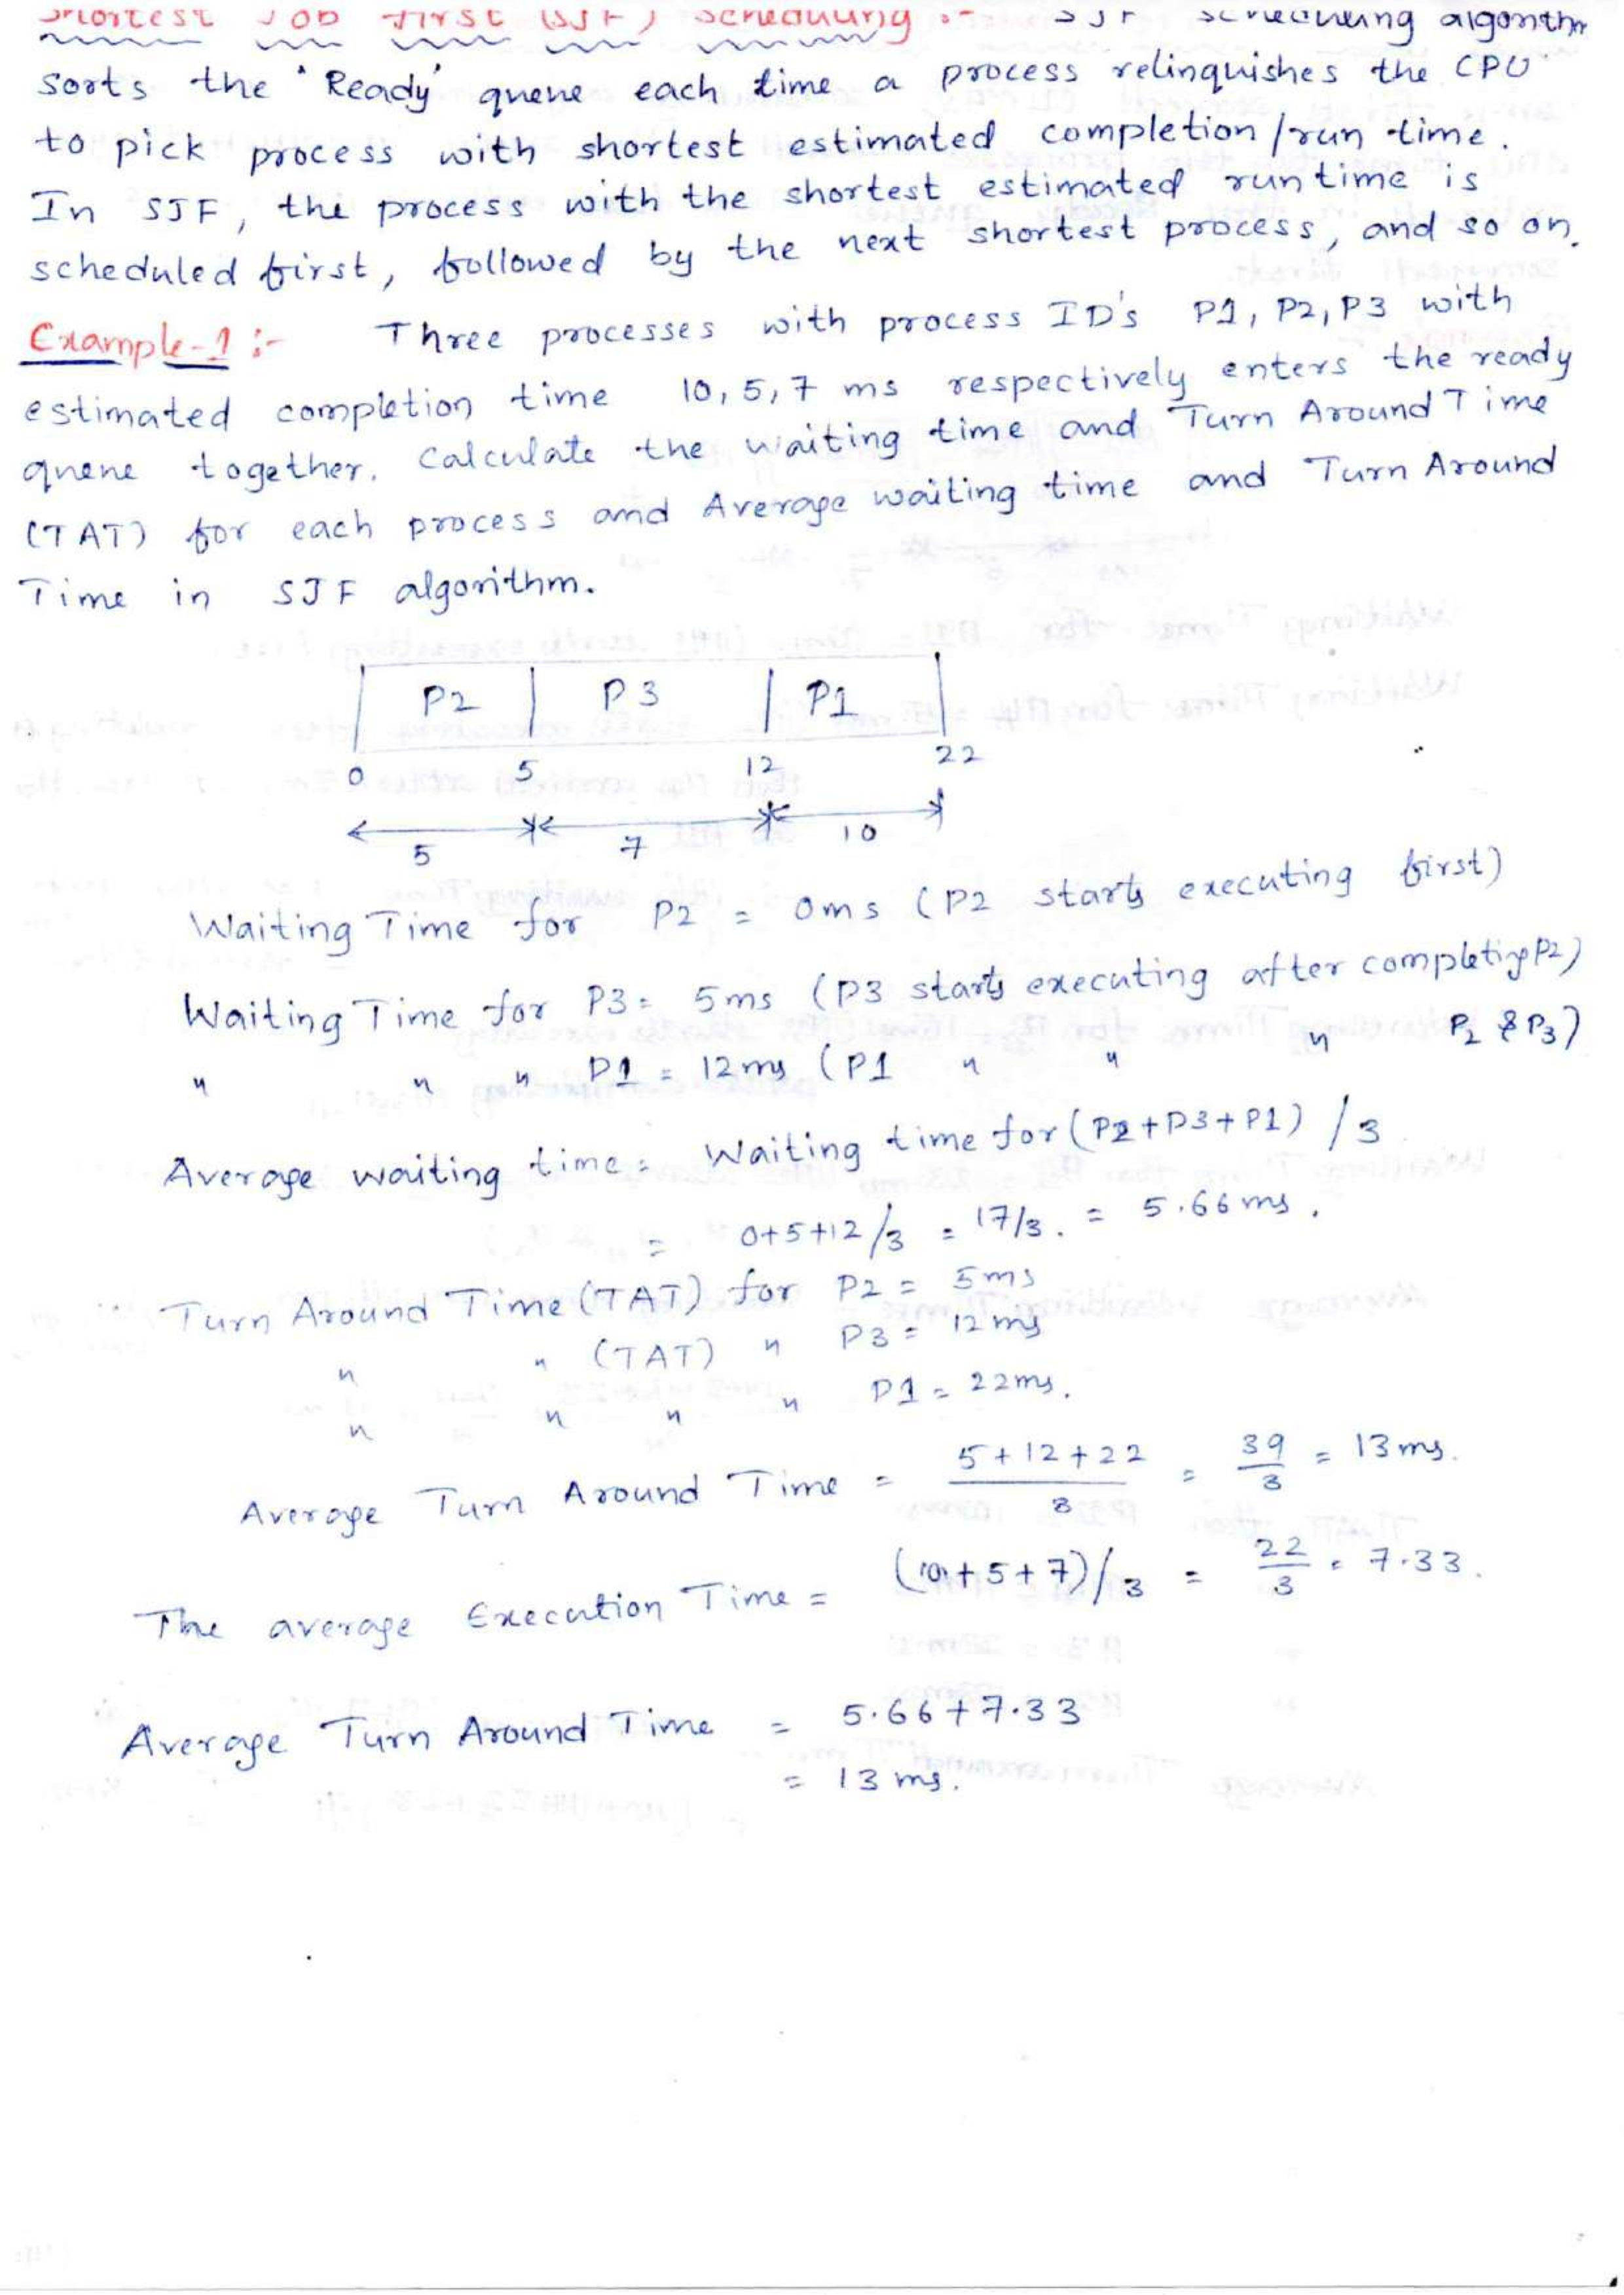 Shortest Job First (SJF) Scheduling :- SJF scheduling algorithm
sorts the 'Ready' queue each time a process relinquishes the CPU
to pick process with shortest estimated completion/run time.
In SJF, the process with the shortest estimated run time is
scheduled first, followed by the next shortest process, and so on.
Example-1 :- Three processes with process ID's P1, P2, P3 with
estimated completion time 10, 5, 7 ms respectively enters the ready
queue together. Calculate the waiting time and Turn Around Time
(TAT) for each process and Average waiting time and Turn Around
Time in SJF algorithm.
P2 P3 P1
0 5 12 22
5 7 10
Waiting Time for P2 = 0ms (P2 starts executing first)
Waiting Time for P3 = 5ms (P3 starts executing after completing P2)
" " " P1 = 12ms (P1 " " " P2 & P3)
Average waiting time = Waiting time for (P2+P3+P1) /3
= 0+5+12/3 = 17/3. = 5.66 ms.
Turn Around Time (TAT) for P2 = 5ms
" " (TAT) " P3 = 12ms
" " " " P1 = 22ms.
Average Turn Around Time = 5+12+22/3 = 39/3 = 13ms.
The average Execution Time = (10+5+7)/3 = 22/3 = 7.33.
Average Turn Around Time = 5.66+7.33
= 13 ms.